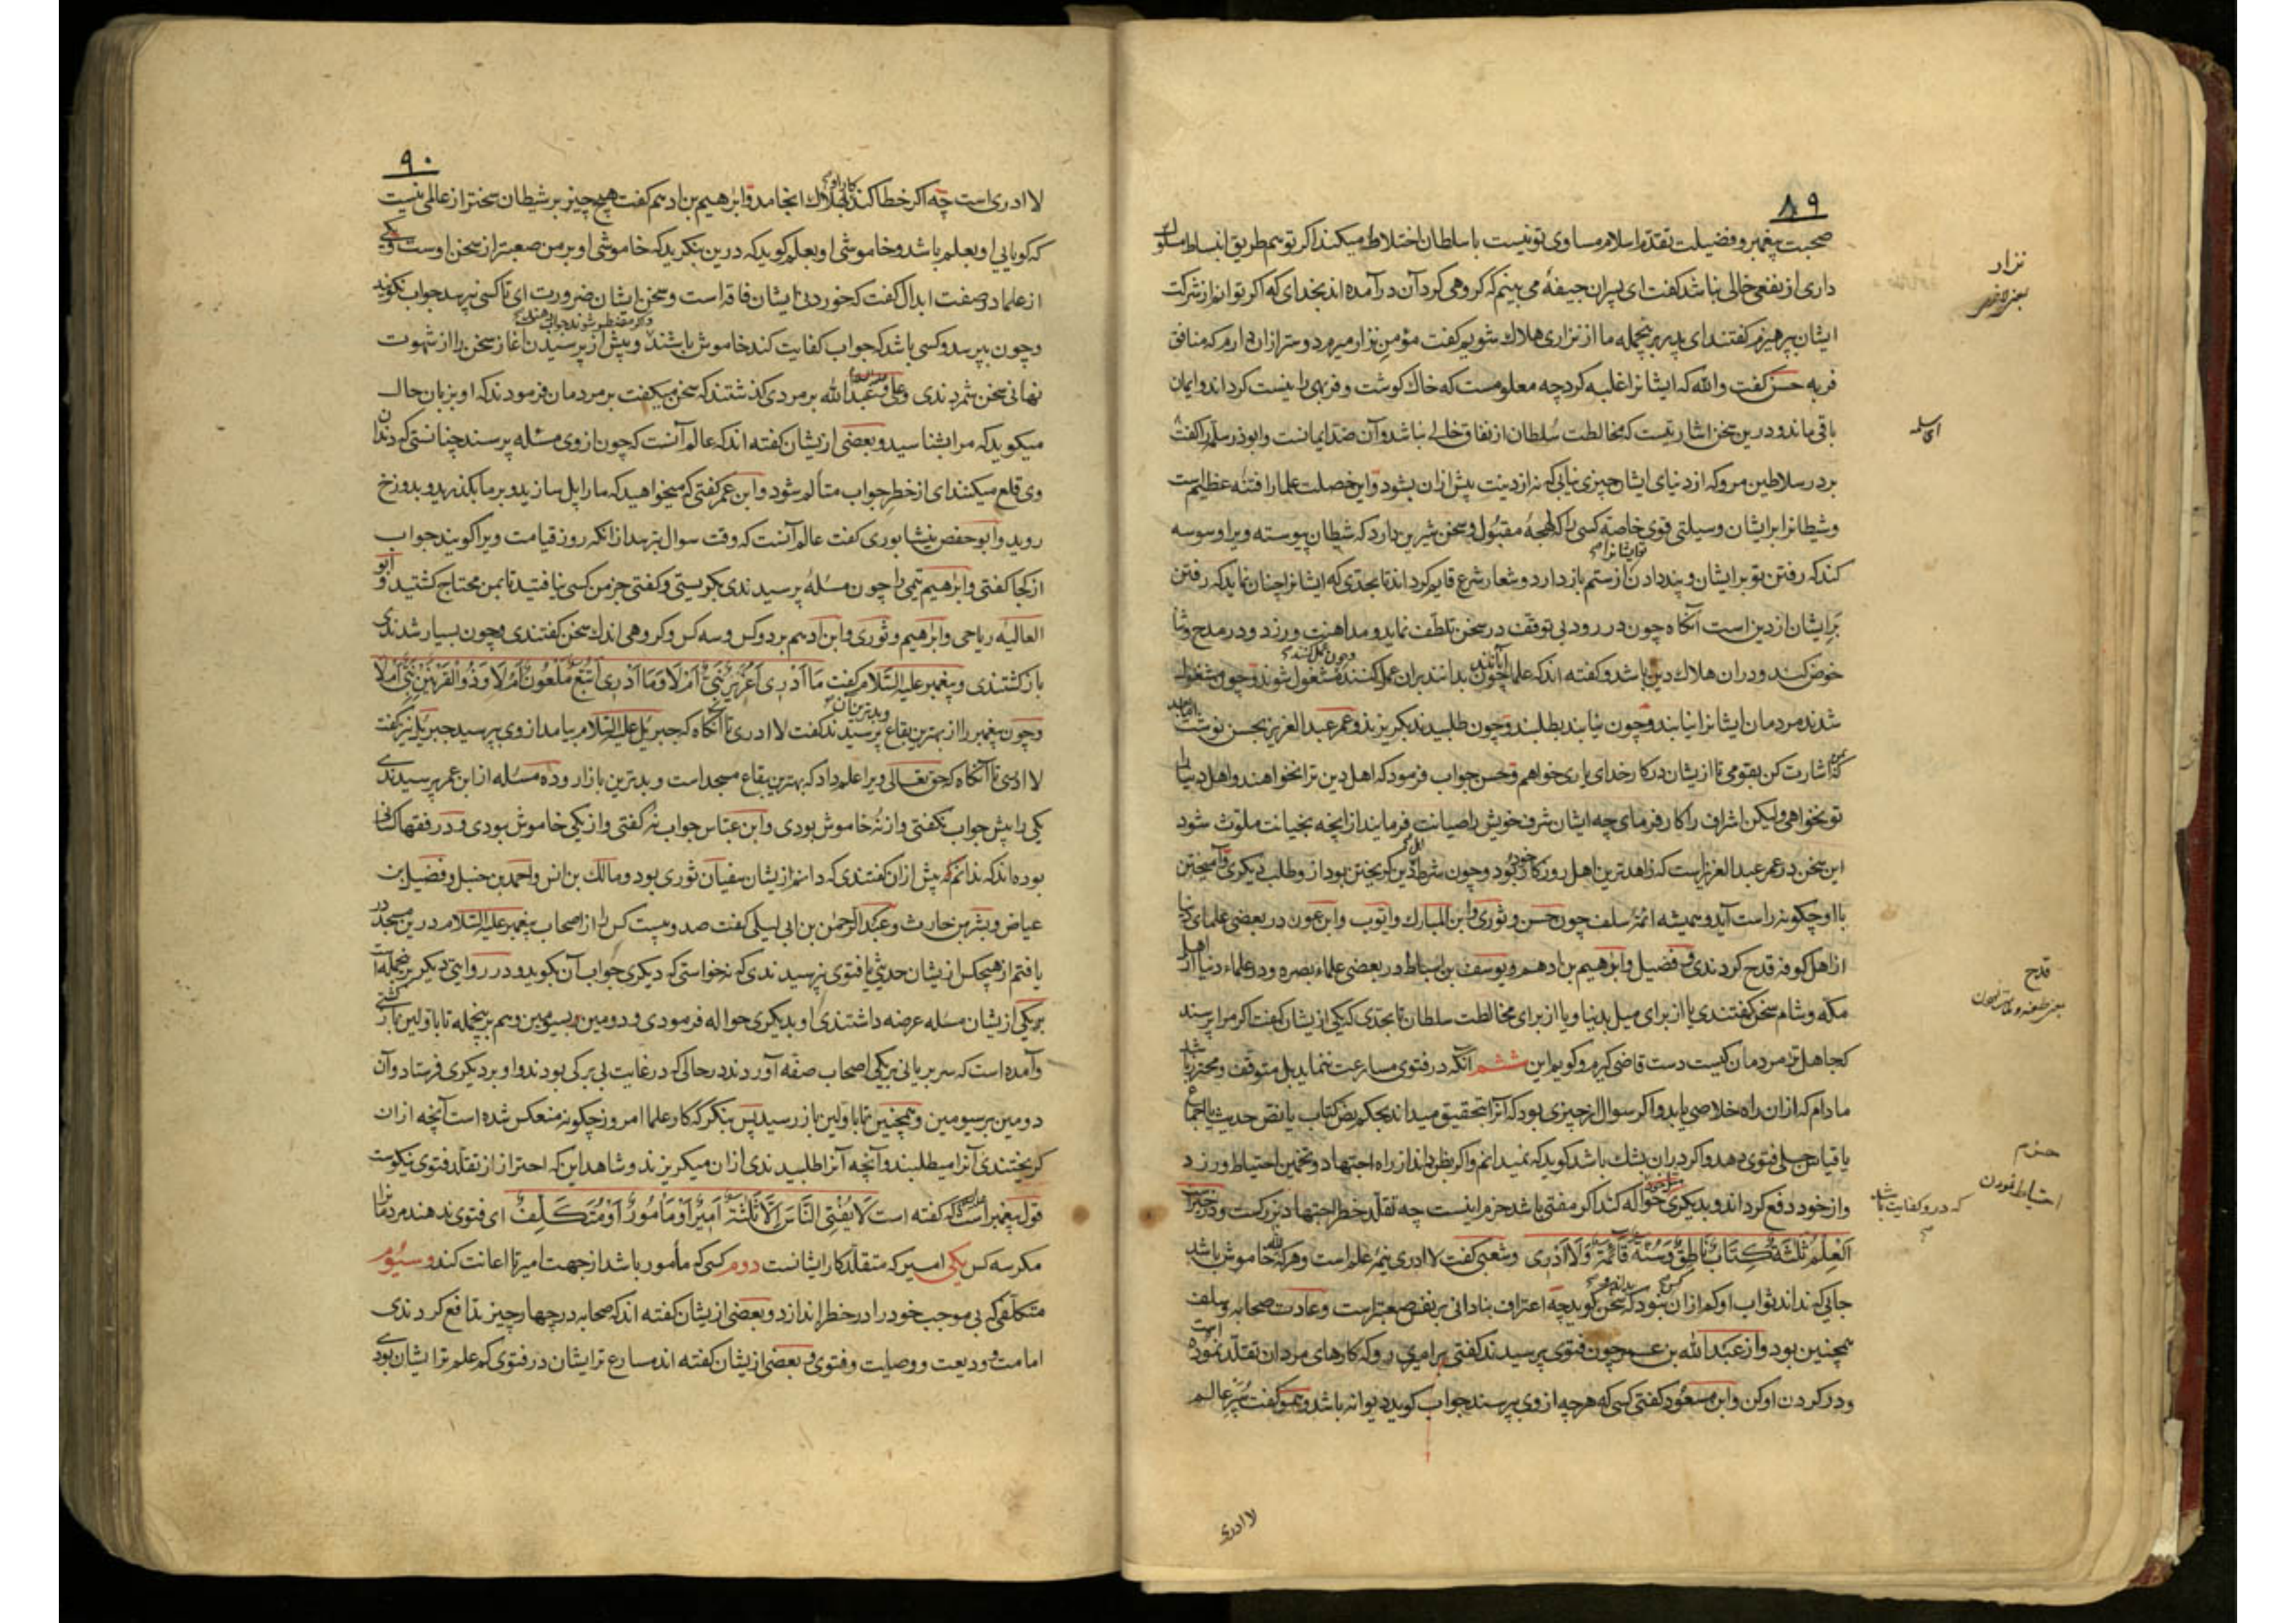 ۸۹
صحبت پیغمبر و فضیلت تقدم اسلام مساوی تو نیست با سلطان اختلاط میکند اگر تو هم طریق انبساط
داری از نفعی خالی نباشد گفت ای پسران جیفهٔ می بینم که گروهی گرد آن در آمده اند بخدای که اگر توانم از شرکت
ایشان بپرهیزم گفتند ای پدر برینجمله ما از نزاری هلاک شویم گفت مؤمن نزار میرم دوستر ازان دارم که منافق
فربه حسن گفت والله که ایشانرا غلبه کرد چه معلومست که خاک گوشت و فربهی را نیست گرداند و ایمان
باقی ماند و درین سخن اشارتیست که مخالطت سلطان از نفاق خالی نباشد و آن ضد ایمانست و ابوذر سلمه را گفت
بر در سلاطین مرو که از دنیای ایشان چیزی نیابی که نه از دینت بیش ازان بشود و این خصلت علما را فتنه عظیم است
و شیطانرا بر ایشان وسیلتی قوی خاصه کسی را که لهجهٔ مقبول و سخن شیرین دارد که شیطان پیوسته ویرا وسوسه
کند که رفتن تو بر ایشان و پند دادن از ستم باز دارد و شعار شرع قایم گرداند تا بحدی که ایشانرا چنان نماید که رفتن
بر ایشان از دین است آنگاه چون در رود بی توقف در سخن تلطف نماید و مداهنت ورزد و در مدح و ثنا
خوض کند و دران هلاک دین باشد و گفته اند که علما چون بدانند بران عمل کنند مشغول شوند و چون مشغول
شدند مردمان ایشانرا نیابند و چون نیابند بطلبند و چون طلبیدند بگریزند و عمر عبد العزیز بحسن نوشت
که اشارت کن بقومی تا ازیشان در کار خدای یاری خواهم و حسن جواب فرمود که اهل دین ترا نخواهند و اهل دنیا را
تو نخواهی ولیکن اشراف را کار فرمای چه ایشان شرف خویش را صیانت فرمایند از آنچه بخیانت ملوث شود
این سخن در عمر عبد العزیز است که زاهد ترین اهل روزگار خود بود و چون شرط دین گریختن بود از و طلب دیگری و آمیختن
با او چگونه راست آید و همیشه ائمهٔ سلف چون حسن و ثوری و ابن المبارک و ایوب و ابن عون در بعضی علمای دنیا
از اهل کوفه قدح کردندی و فضیل و ابرهیم بن ادهم و یوسف بن اسباط در بعضی علماء بصره و در علماء دنیا از اهل
مکه و شام سخن گفتندی یا از برای میل بدنیا و یا از برای مخالطت سلطان تا بحدی که یکی ازیشان گفت اگر مرا پرسند
که جاهل ترین مردمان کیست دست قاضی گیرم و گویم این ششم آنکه در فتوی مسارعت ننماید بل متوقف و محترز باشد
مادام که ازان راه خلاصی یابد و اگر سوال از چیزی بود که آنرا بتحقیق میداند بحکم نص کتاب یا نص حدیث یا اجماع
یا قیاس جلی فتوی دهد و اگر دران بشک باشد گوید که نمیدانم و اگر بظن داند از راه اجتهاد و تخمین احتیاط ورزد
و از خود دفع گرداند و بدیگری حواله کند اگر مفتی باشد حزم اینست چه تقلد خطر اجتهاد بزرگست و در خبرست
اَلْعِلْمُ ثَلٰثَةٌ كِتَابٌ نَاطِقٌ وَسُنَّةٌ قَائِمَةٌ وَلَا اَدْرِی و شعبی گفت لا ادری نیم علم است و هر که خاموش باشد
جایی که نداند ثواب او کم ازان نبود که سخن گوید چه اعتراف بنادانی بر نفس صعبتر است و عادت صحابه و سلف
همچنین بود و از عبد الله بن عمر چون فتوی پرسیدند گفتی بر امیری رو که کارهای مردان تقلد نموده است
و در گردن او کن و ابن مسعود گفتی کسی که هر چه از وی پرسند جواب گوید دیوانه باشد و هم او گفت سپر عالم
لا ادری
نزار
یعنی لاغر
ای سلمه
قدح
حزم
احتیاط نمودن
که در و کفایت باشد
۹۰
لا ادری است چه اگر خطا کند بهلاک انجامد و ابرهیم بن ادهم گفت هیچ چیز بر شیطان سختر از عالمی نیست
که گویایی او بعلم باشد و خاموشی او بعلم گوید که درین بنگرید که خاموشی او بر من صعبتر از سخن اوست و یکی
از علما در صفت ابدال گفت که خوردن ایشان فاقه است و سخن ایشان ضرورت ای تا کسی نپرسد جواب نگویند
و چون بپرسد و کسی باشد که جواب کفایت کند خاموش باشند و پیش از پرسیدن آغاز سخن را از شهوت
نهانی سخن شمردندی و علی و عبد الله بر مردی گذشتند که سخن میگفت بر مردمان فرمودند که او بزبان حال
میگوید که مرا بشناسید و بعضی ازیشان گفته اند که عالم آنست که چون از وی مسئله پرسند چنانستی که دندان
وی قلع میکنند ای از خطر جواب متألم شود و ابن عمر گفتی که میخواهید که ما را پل سازید و بر ما بگذرید و بدوزخ
روید و ابو حفص نیشابوری گفت عالم آنست که وقت سوال بترسد ازانکه روز قیامت ویرا گویند جواب
از کجا گفتی و ابرهیم تیمی را چون مسئله پرسیدندی بگریستی و گفتی جز من کسی نیافتید تا بمن محتاج گشتید و ابو
العالیه ریاحی و ابرهیم و ثوری و ابن ادهم بر دو کس و سه کس و گروهی اندک سخن گفتندی و چون بسیار شدندی
بازگشتندی و پیغمبر علیه السلام گفت مَا اَدْرِی اَعُزَیْرٌ نَبِیٌّ اَمْ لَا وَ مَا اَدْرِی اَتُبَّعٌ مَلْعُونٌ اَمْ لَا وَ ذُو الْقَرْنَیْنِ نَبِیٌّ اَمْ لَا
و چون پیغمبر را از بهترین بقاع پرسیدند گفت لا ادری تا آنگاه که جبریل علیه السلام بیامد از وی پرسید جبریل نیز گفت
لا ادری تا آنگاه که حق تعالی ویرا علم داد که بهترین بقاع مسجد است و بدترین بازار و ده مسئله از ابن عمر پرسیدندی
یکی را بیش جواب نگفتی و از نُه خاموش بودی و ابن عباس جواب نُه گفتی و از یکی خاموش بودی و در فقها کسانی
بوده اند که ندانم بیش ازان گفتندی که دانم ازیشان سفیان ثوری بود و مالک بن انس و احمد بن حنبل و فضیل بن
عیاض و بشر بن حارث و عبد الرحمن بن ابی لیلی گفت صد و بیست کس را از اصحاب پیغمبر علیه السلام درین مسجد در
یافتم از هیچکس ازیشان حدیثی یا فتوی نپرسیدندی که نه خواستی که دیگری جواب آن گوید و در روایتی دیگر برینجمله است
بر یکی ازیشان مسئله عرضه داشتندی او بدیگری حواله فرمودی و دومین بسیومین و هم برینجمله تا باولین باز گشتی
و آمده است که سر بریانی بر یکی اصحاب صفه آوردند در حالی که در غایت بی برگی بودند و او بر دیگری فرستاد و آن
دومین بر سیومین و همچنین تا باولین باز رسید پس بنگر که کار علما امروز چگونه منعکس شده است آنچه ازان
گریختندی آنرا میطلبند و آنچه آنرا طلبیدندی ازان میگریزند و شاهد این که احتراز از تقلد فتوی نیکوست
قول پیغمبر است که گفته است لَا یُفْتِی النَّاسَ اِلَّا ثَلٰثَةٌ اَمِیرٌ اَوْ مَأْمُورٌ اَوْ مُتَكَلِّفٌ ای فتوی ندهند مردمانرا
مگر سه کس یکی امیر که متقلد کار ایشانست دوم کسی که مأمور باشد از جهت امیر تا اعانت کند و سیوم
متکلفی که بی موجب خود را در خطر اندازد و بعضی ازیشان گفته اند که صحابه در چهار چیز تدافع کردندی
امامت و ودیعت و وصایت و فتوی و بعضی ازیشان گفته اند مسارع تر ایشان در فتوی کم علم تر ایشان بودی